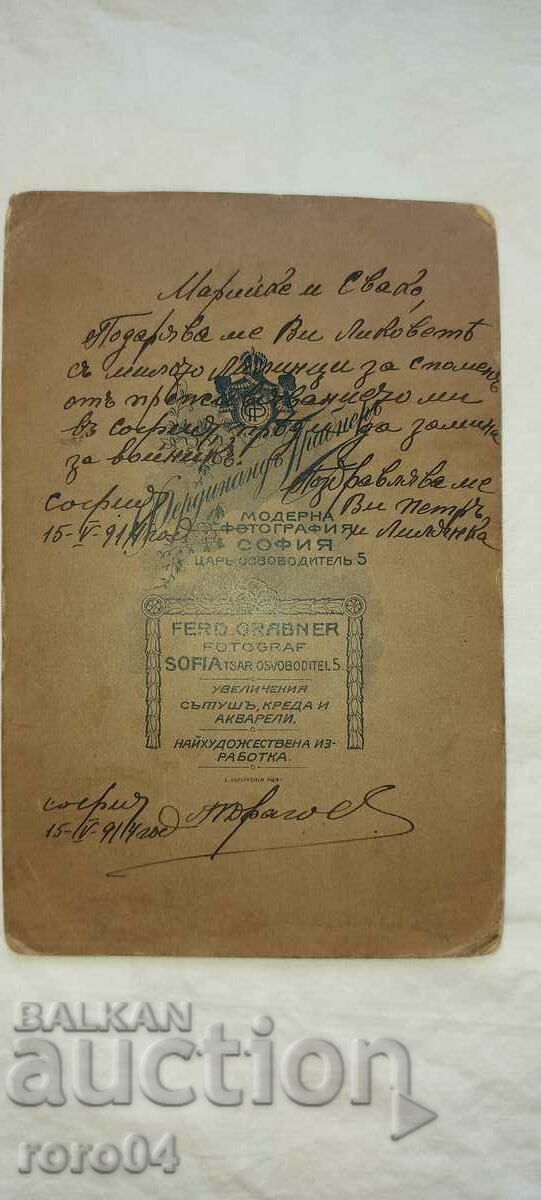 Марийке и Свако,
Подаряваме Ви Ликоветѣ
съ милото за споменъ
отъ ми
въ София да замина
за войникъ.
Поздравляваме
Ви Петръ
и Лилянка
София
15-V-914 год
Фердинандъ Грабнеръ
МОДЕРНА
ФОТОГРАФИЯ
СОФИЯ
ЦАРЬ ОСВОБОДИТЕЛЬ 5
FERD. GRABNER
FOTOGRAF
SOFIA TSAR OSVOBODITEL 5.
УВЕЛИЧЕНИЯ
СЪ ТУШЪ, КРЕДА И
АКВАРЕЛИ.
НАЙХУДОЖЕСТВЕНА ИЗ-
РАБОТКА.
София
15-IV-914 год
BALKAN
auction
roro04